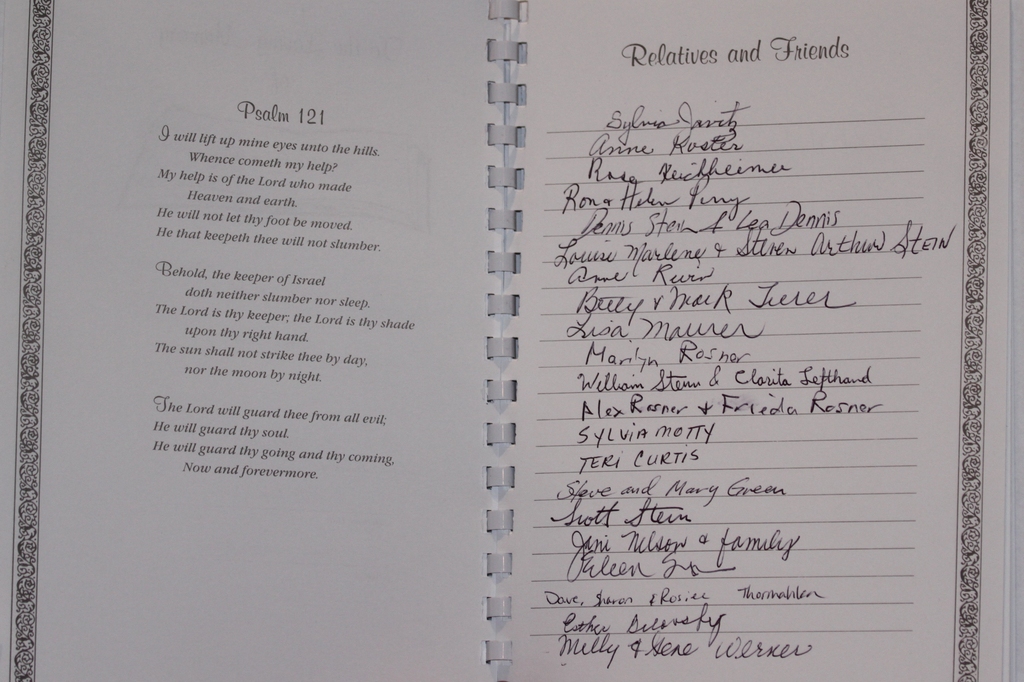 Psalm 121
I will lift up mine eyes unto the hills.
Whence cometh my help?
My help is of the Lord who made
Heaven and earth.
He will not let thy foot be moved.
He that keepeth thee will not slumber.
Behold, the keeper of Israel
doth neither slumber nor sleep.
The Lord is thy keeper; the Lord is thy shade
upon thy right hand.
The sun shall not strike thee by day,
nor the moon by night.
The Lord will guard thee from all evil;
He will guard thy soul.
He will guard thy going and thy coming,
Now and forevermore.
Relatives and Friends
Sylvia Javitz
Anne Koster
Rose
Ron & Helen Perry
Dennis Stein & Lea Dennis
Louise Marlene & Steven Arthur Stein
Anne
& Mark
Lisa Maurer
Marilyn Rosner
William Stein & Clarita Lefthand
Alex Rosner & Frieda Rosner
SYLVIA MOTTY
TERI CURTIS
Steve and Mary Green
Scott Stein
Jani Nelson & family
Eileen
Dave, Sharon & Rosiee Thormahlen
Esther
Milly & Gene Werner